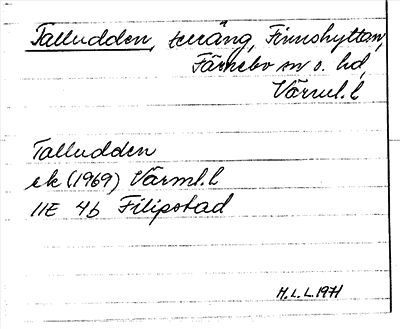 Talludden, terräng, Finnshyttan,
Färnebo sn o. hd,
Värml. l
Talludden
ek (1969) Värml. l
11E 4b Filipstad
H. L. L. 1971